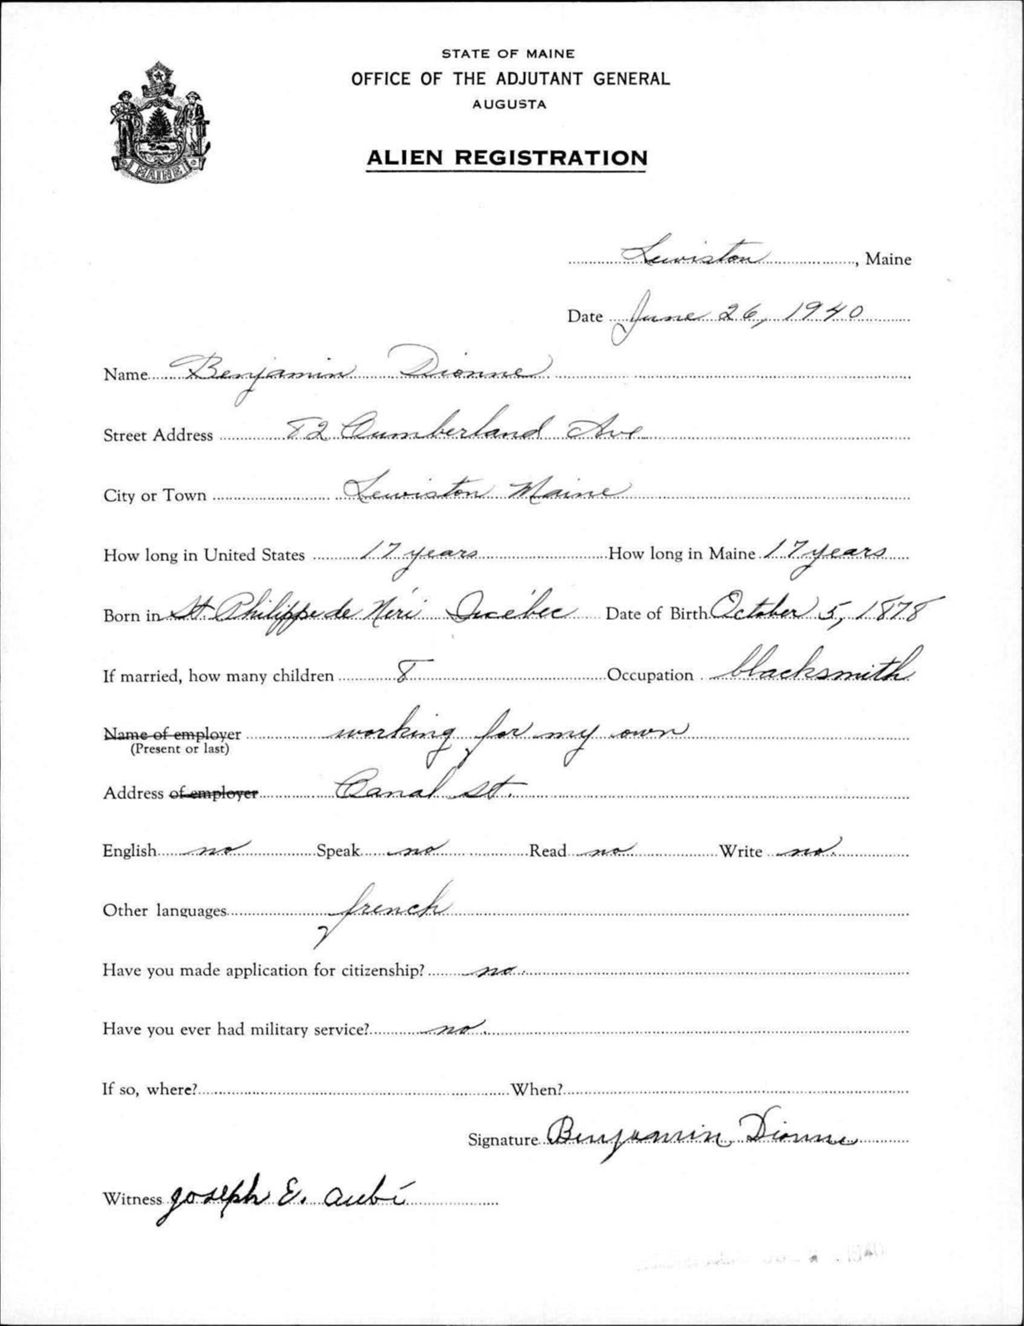 STATE OF MAINE
OFFICE OF THE ADJUTANT GENERAL
AUGUSTA
ALIEN REGISTRATION
MAINE
Lewiston, Maine
Date June 26, 1940
Name Benjamin Dionne
Street Address 82 Cumberland Ave
City or Town Lewiston Maine
How long in United States 17 years How long in Maine 17 years
Born in St. Philippe de Néri Québec Date of Birth October 5, 1878
If married, how many children 8 Occupation blacksmith
Name of employer working for my own
(Present or last)
Address of employer Canal St.
English no Speak no Read no Write no.
Other languages french
Have you made application for citizenship? no.
Have you ever had military service? no.
If so, where? When?
Signature Benjamin Dionne
Witness Joseph E. Aubé